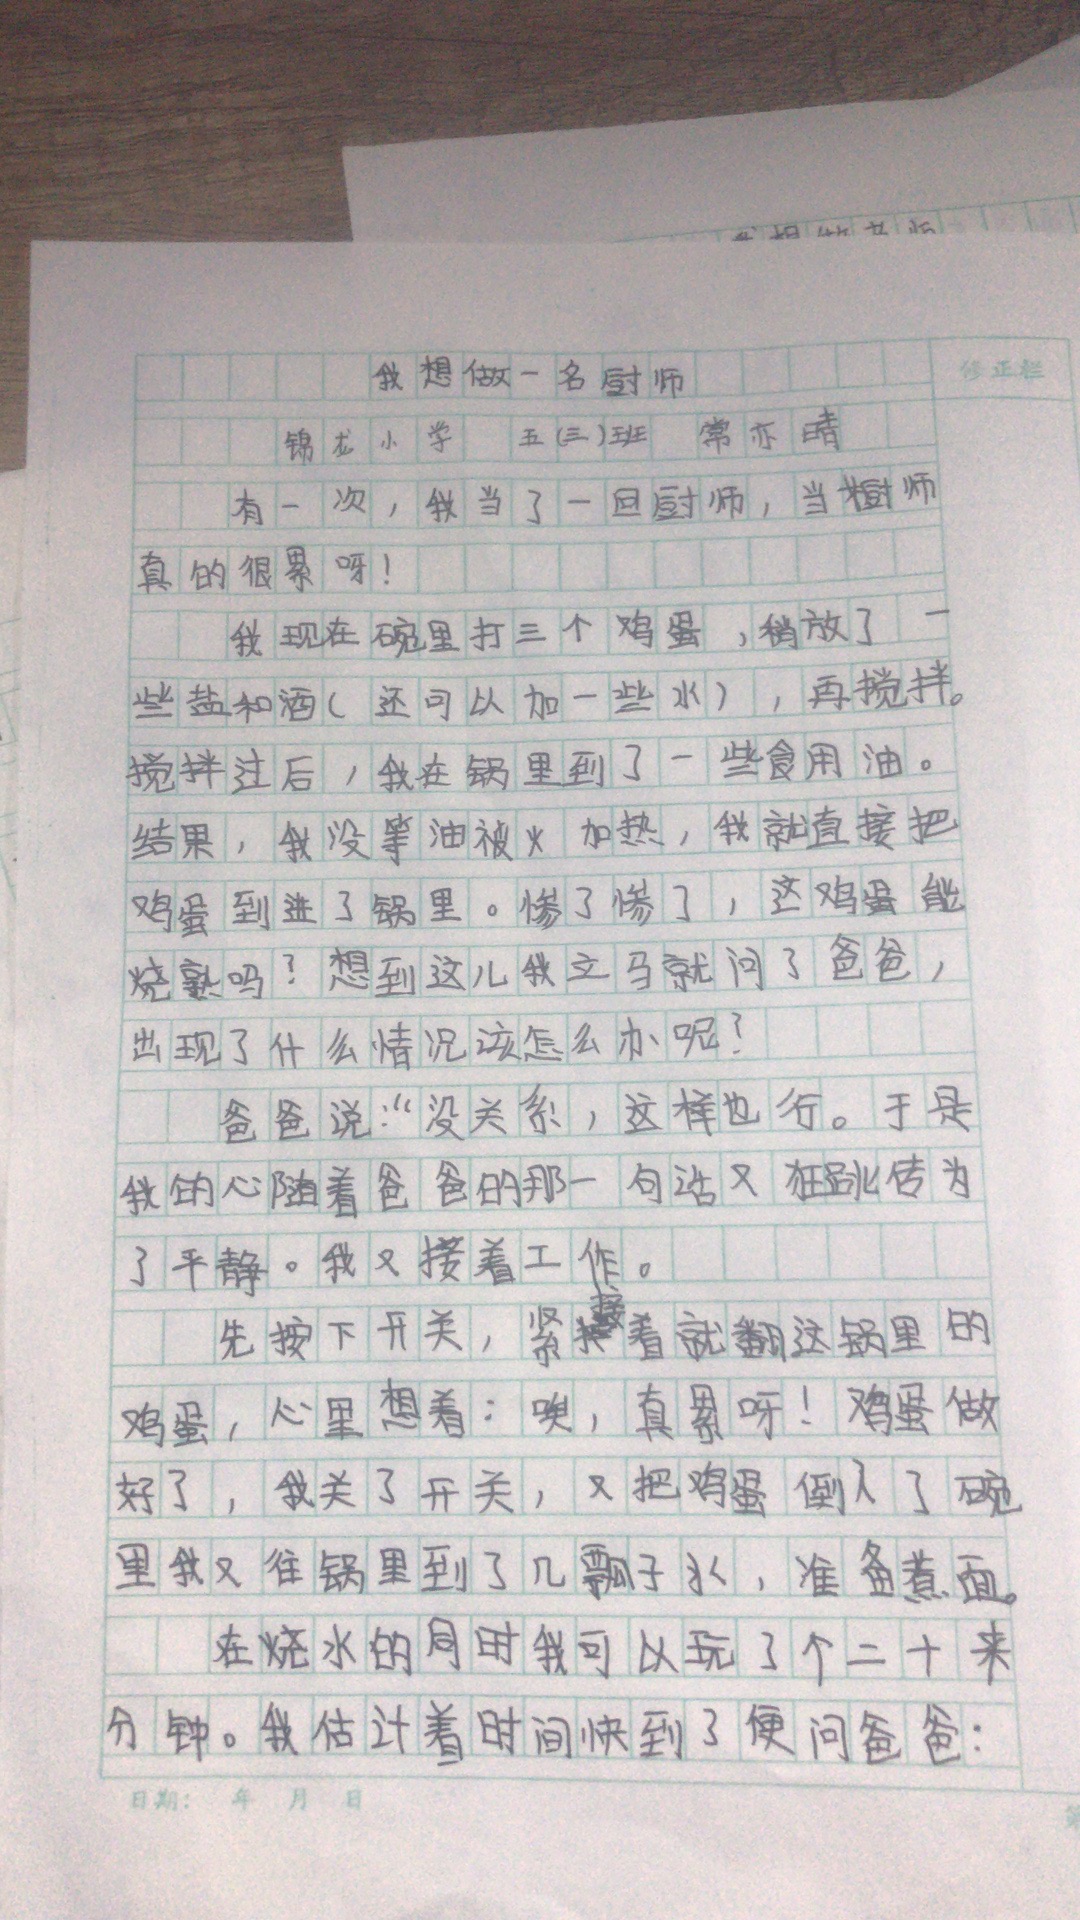 我想做一名厨师
修正栏
锦龙小学 五(三)班 常亦晴
有一次，我当了一回厨师，当厨师
真的很累呀！
我现在碗里打三个鸡蛋，稍放了一
些盐和酒（还可以加一些水），再搅拌。
搅拌过后，我在锅里到了一些食用油。
结果，我没等油被火加热，我就直接把
鸡蛋到进了锅里。惨了惨了，这鸡蛋能
烧熟吗？想到这儿我立马就问了爸爸，
出现了什么情况该怎么办呢？
爸爸说：“没关系，这样也行。于是
我的心随着爸爸的那一句话又狂跳传为
了平静。我又接着工作。
先按下开关，紧接着就翻这锅里的
鸡蛋，心里想着：唉，真累呀！鸡蛋做
好了，我关了开关，又把鸡蛋倒入了碗
里我又往锅里到了几瓢子水，准备煮面。
在烧水的同时我可以玩了个二十来
分钟。我估计着时间快到了便问爸爸：
日期： 年 月 日